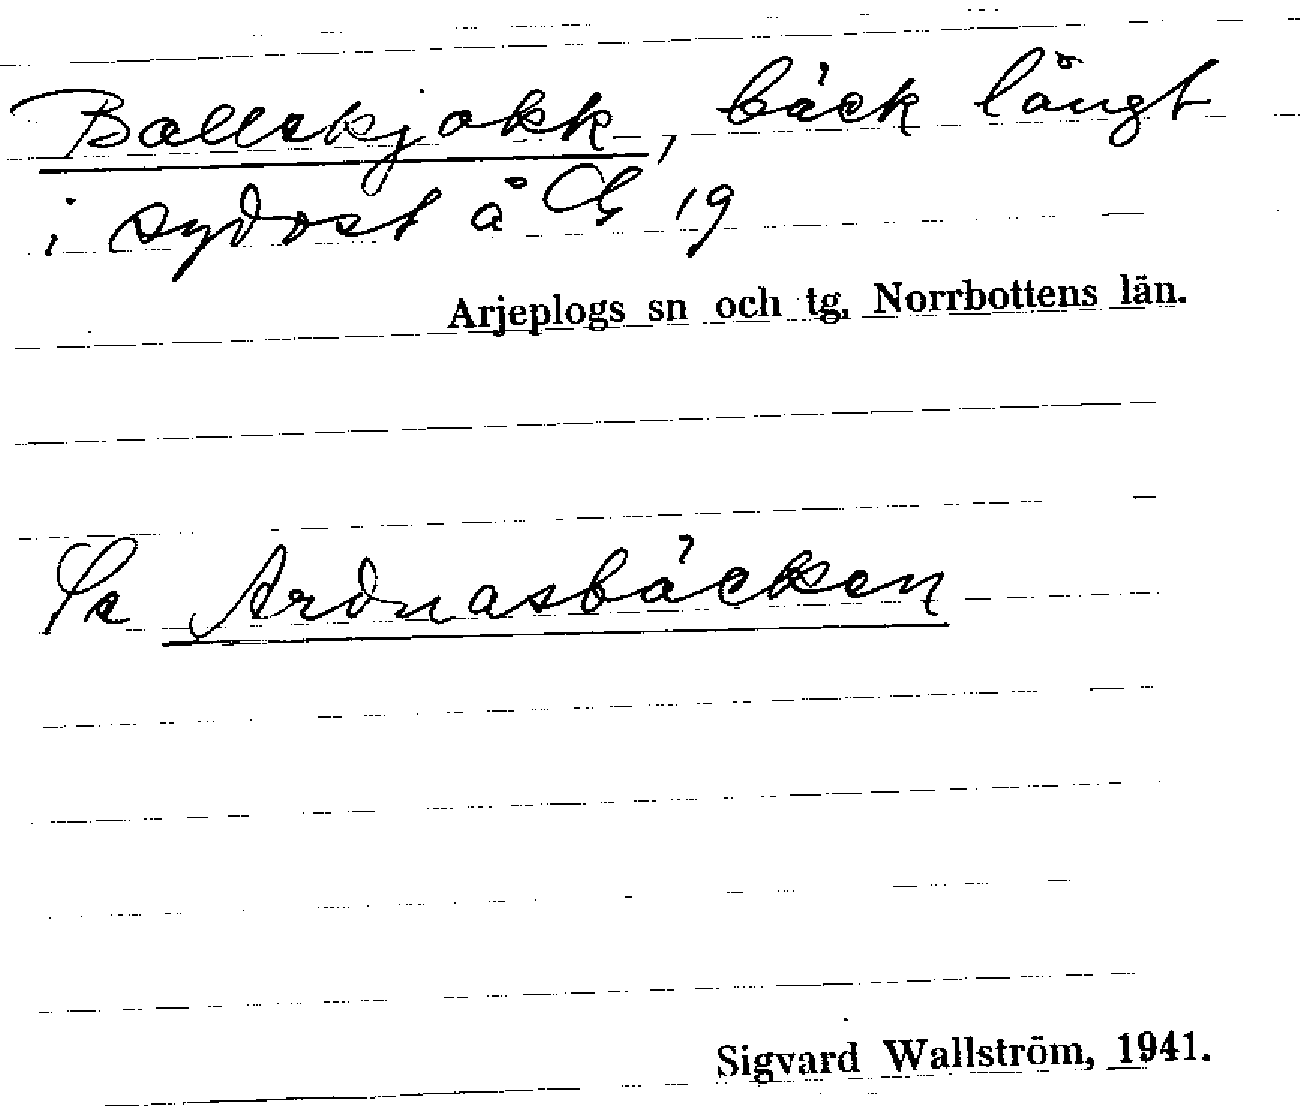 Ballekjokk, bäck långt
i sydost å G 19
Arjeplogs sn och tg. Norrbottens län.
Se Ardnasbäcken
Sigvard Wallström, 1941.